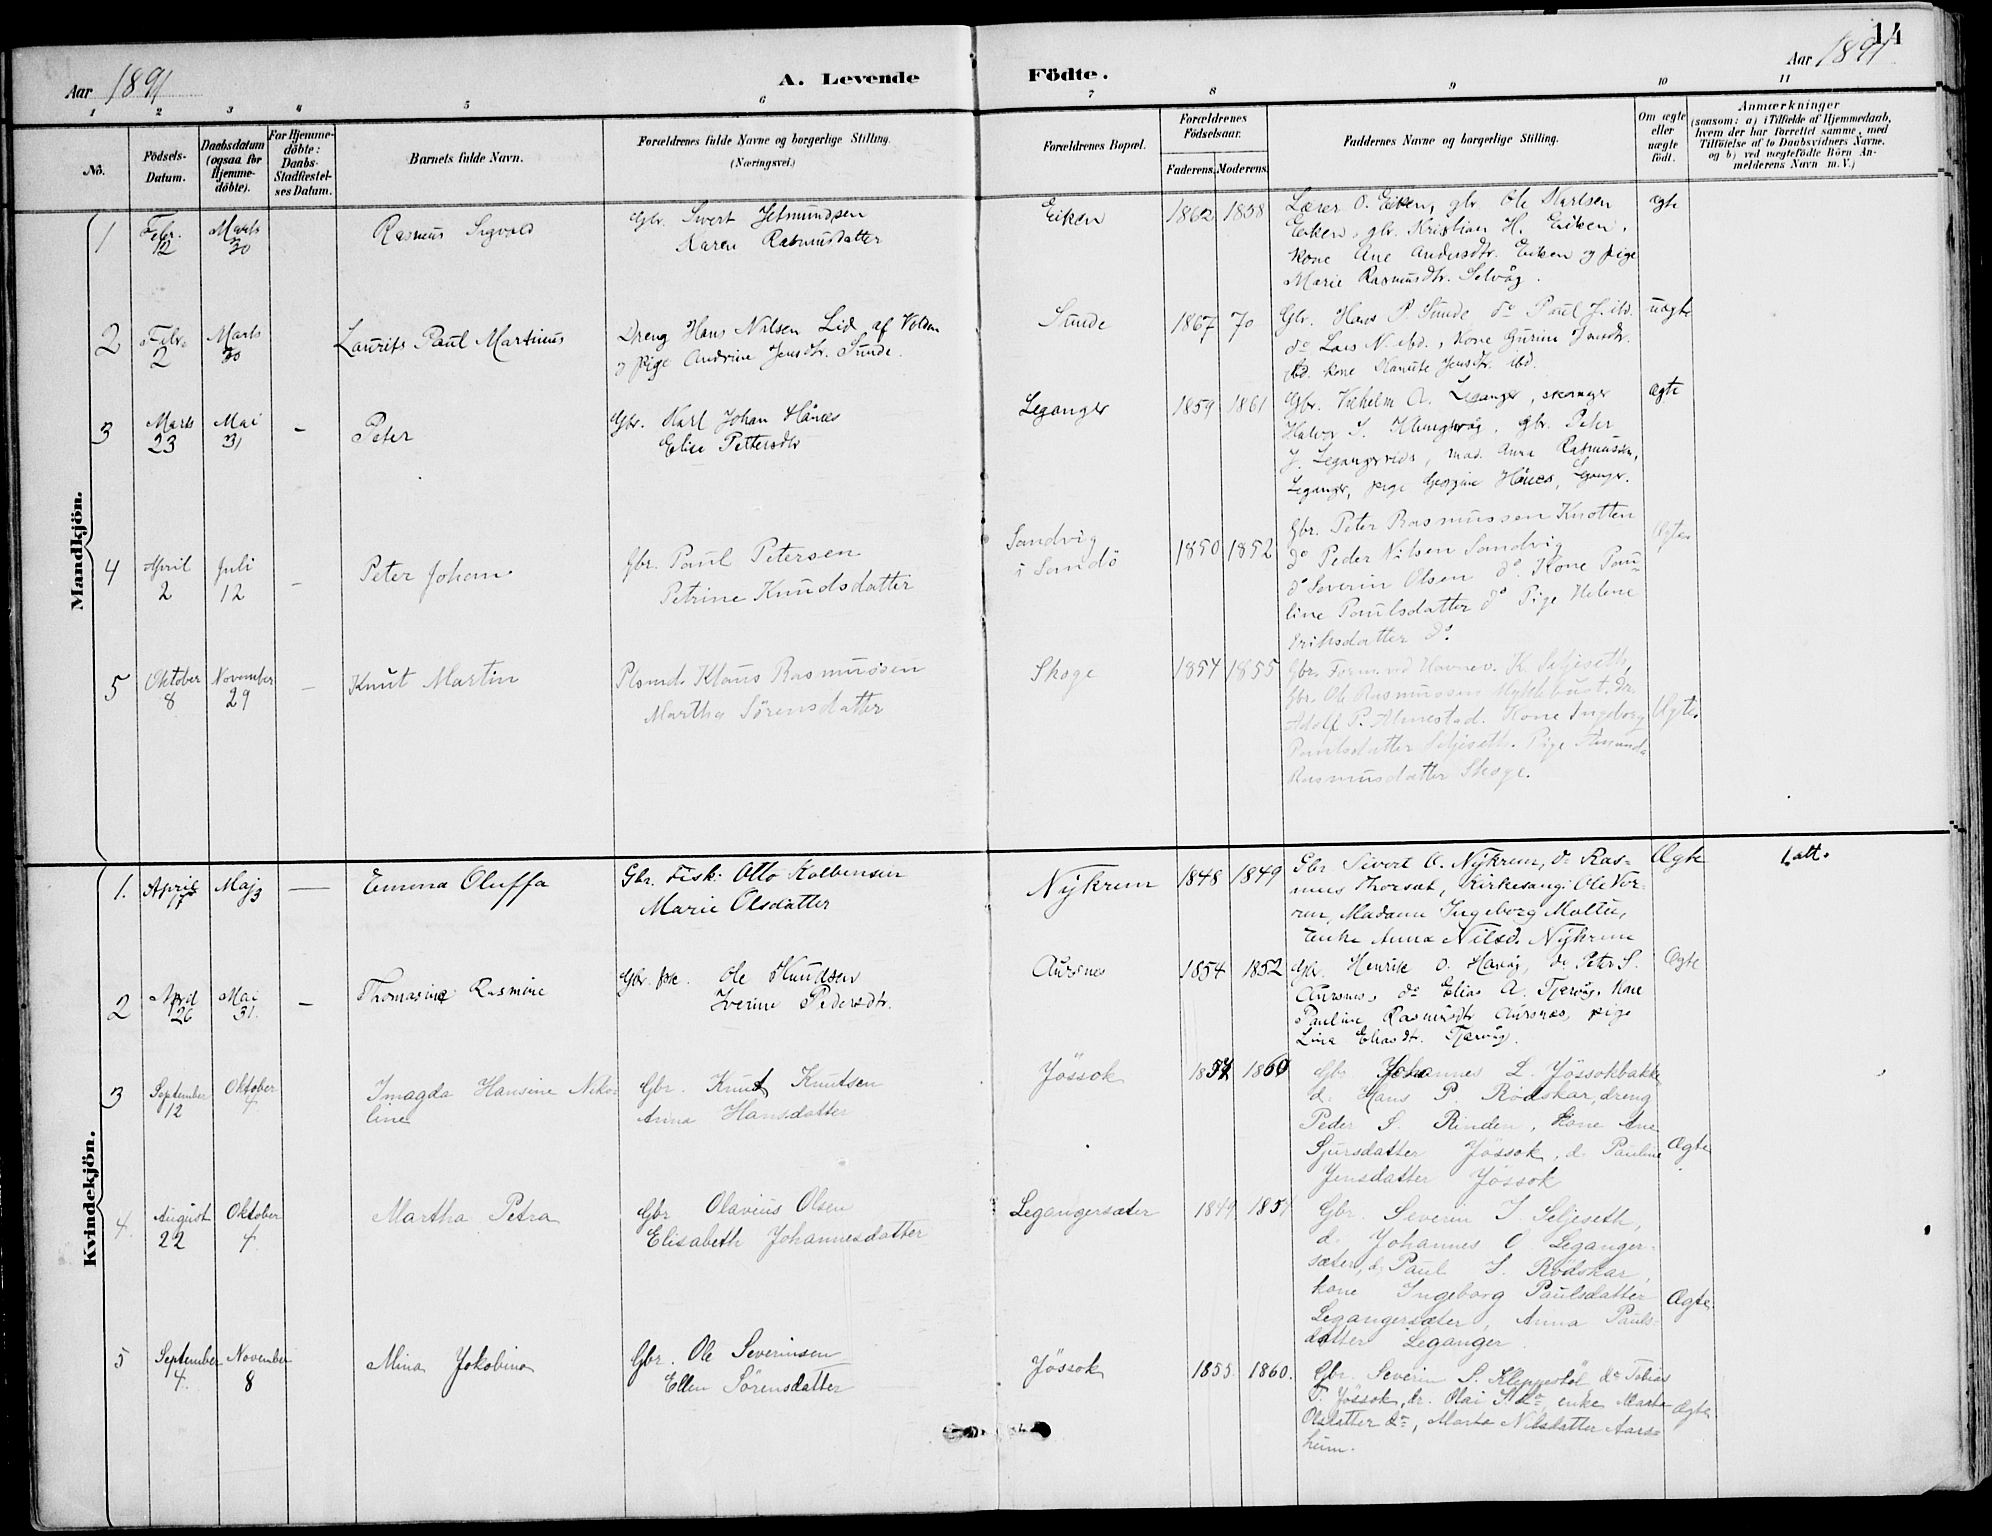 14
Aar 1891
A. Levende Födte.
Aar 1891
1 2 3 4 5 6 7 8 9 10 11
No.
Födsels-Datum.
Daabsdatum (ogsaa for Hjemme-döbte).
For Hjemme-döbte: Daabs-Stadfæstel-ses Datum.
Barnets fulde Navn.
Forældrenes fulde Navne og borgerlige Stilling.
(Næringsvei.)
Forældrenes Bopæl.
Forældrenes Födselsaar.
Faderens. Moderens.
Faddernes Navne og borgerlige Stilling.
Om ægte eller uægte födt.
Anmærkninger
(saasom: a) i Tilfælde af Hjemmedaab,
hvem der har forrettet samme, med
Tilföielse af to Daabsvidners Navne,
og b) ved uægtefödte Börn An-
melderens Navn m. V.)
Mandkjön.
1 Febr. 12 Marts 30 Rasmus Sigvald
Gbr. Sivert Jetmundsen
Karen Rasmusdatter
Eiken 1862 1858
Lærer O. Eiken, gbr Ole Karlsen
Eiken, gbr. Kristian H. Eiken,
kone Ane Andersdtr. Eiken og pige
Marie Rasmusdtr. Selvåg.
ægte
2 Febr. 2 Marts 30 Laurits Paul Martinus
Dreng Hans Nilsen Lid af Volden
og pige Andrine Jensdtr. Sunde.
Sunde 1867 70
Gbr. Hans P. Sunde do Paul J. ibd.
do Lars N. ibd., kone Gurine Jensdtr.
ibd. kone Hanute Jensdtr. ibd.
uægte
3 Marts 23 Mai 31 – Peter
Gbr. Karl Johan Hånæs
Elise Pettersdtr
Leganger 1859 1861
Gbr. Vilhelm A. Leganger,
Halvor S. Klungsvåg, gbr. Peter
J. Legangersider, mad. Anna Rasmussen,
Leganger, pige Georgine Hånæs, Leganger.
Ægte
4 April 2 Juli 12 – Peter Johan
Gbr. Paul Petersen
Petrine Knudsdatter
Sandvig
i Sandö
1850 1852
Gbr. Peter Rasmussen Knotten
do Peder Nilsen Sandvig
do Severin Olsen do. Kone Pau-
line Paulsdatter do Pige Helene
Eriksdatter do
Ægte
5 Oktober 8 November 29 – Knut Martin
Plsmd. Klaus Rasmussen
Martha Sörensdatter
Skoge 1854 1855
Gbr. Form. ved Havnev. K. Seljeseth,
Gbr. Ole Rasmussen Myklebust. Dr.
Adolf P. Almestad. Kone Ingeborg
Paulsdatter Seljeseth. Pige Amunda
Rasmusdatter Skoge.
Ægte
Kvindekjön.
1. April 17 Maj 3 – Emma Oluffa
Gbr. Fisk: Otto Kolbensen
Marie Olsdatter
Nÿkrem 1848 1849
Gbr Sivert O. Nÿkrem, do Ras-
mus Thorsæt, Kirkesang: Ole Vor-
ren, Madame Ingeborg Moltu,
Enke Anna Nilsd. Nÿkrem
Ægte
1 att.
2 April 26 Mai 31. – Thomasine Rasmine
Gbr. fisk. Ole Knudsen
Iverine Pedersdtr.
Aursnes 1854 1852
Gbr. Henrik O. Havåg, do Peter S.
Aursnes, do Elias A. Tjervåg, kone
Pauline Rasmusdtr Aursnes, pige
Lina Eliasdtr. Tjervåg.
Ægte
3 September 12 Oktober 4 Imagda Hansine Niko-
line
Gbr. Knut Knutsen
Anna Hansdatter
Jössok 1854 1860
Gbr Johannes L. Jössokbakke
d. Hans P. Rödskar, dreng
Peder S. Rinden, kone Ane
Sjursdatter Jössok, d. Pauline
Jensdatter Jössok
Ægte
4. August 22 Oktober 4 Martha Petra
Gbr Olavius Olsen
Elisabeth Johannesdatter
Legangersæter 1849 1851
Gbr Severin I. Seljeseth,
d. Johannes O. Leganger-
sæter, d. Paul S. Rödskar,
kone Ingeborg Paulsdatter
Legangersæter, Anna Pauls-
datter Leganger.
Ægte.
5 September 4. November 8 Mina Jokobina
Gbr. Ole Severinsen
Ellen Sörensdatter
Jössok 1855. 1860.
Gbr. Severin S. Kleppestöl do Tobias
T. Jössok, dr. Olai S. do, enke Marte
Olsdatter do, Marta Nilsdatter Aars-
heim.
Ægte